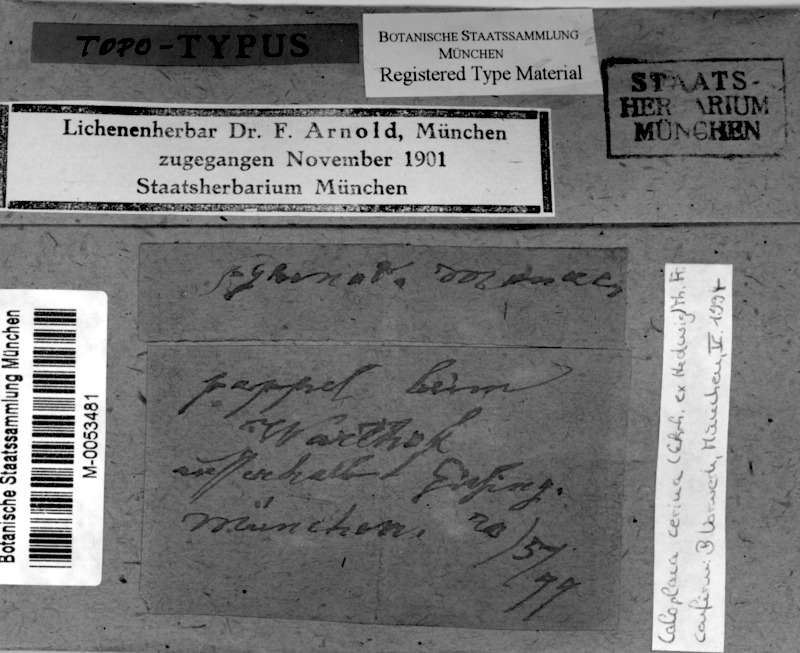 TOPO-TYPUS
BOTANISCHE STAATSSAMMLUNG
MÜNCHEN
Registered Type Material
STAATS-
HERBARIUM
MÜNCHEN
Lichenenherbar Dr. F. Arnold, München
zugegangen November 1901
Staatsherbarium München
pappel beim
Warthof
ausserhalb Giesing.
München. 20/5/99
Botanische Staatssammlung München
M-0053481
Caloplaca cerina (Ehrh. ex Hedwig) Th. Fr.
confirm: München, IV. 1994